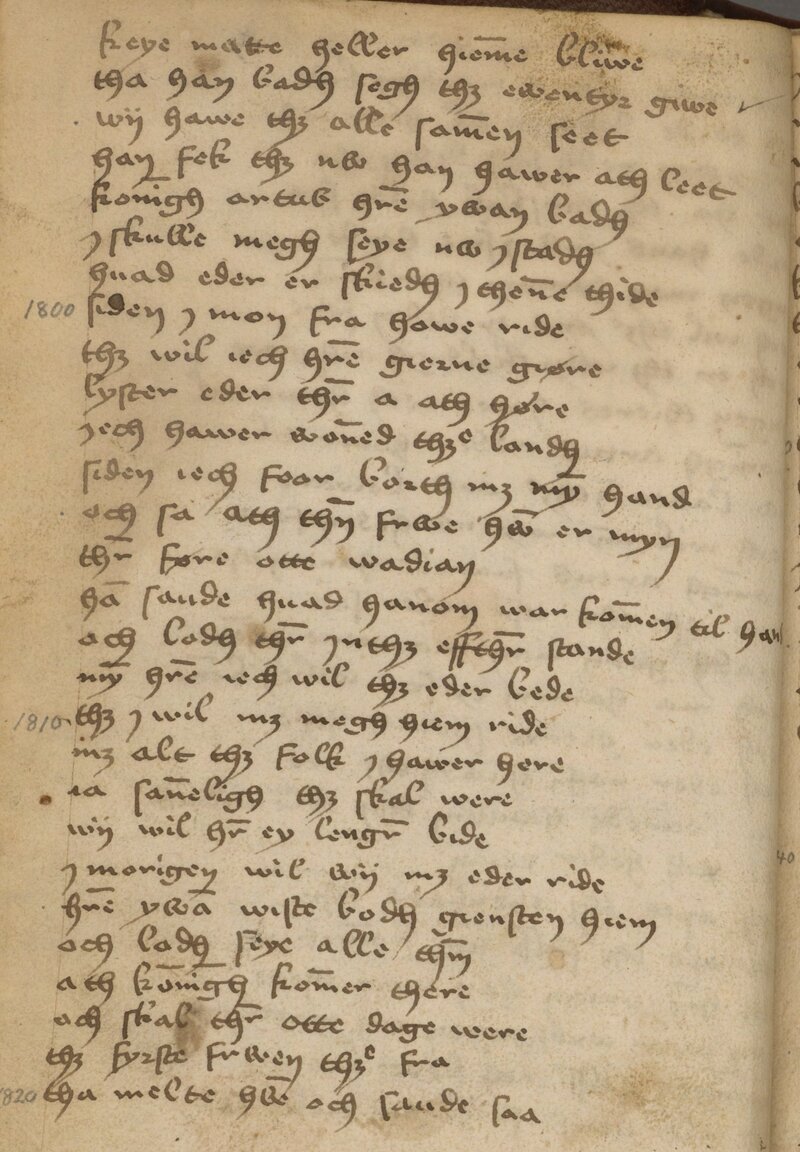 keye matte heller hiem̄e bliwe
tha han badh segh thꝫ ewentyr giwe
wij hawe thꝫ alle sam̄en seet
han fek thꝫ nw han hawer ath leet
koni̅gh artus hr̄e ywan badh
j skulle megh seye nw j stadh
huad eder er skiedh j then̄e thide
1800 siden j mon fra howe ride
thꝫ wil iech hr̄e gierne giøre
lyster eder thr̄ a ath høre
jech hawer won̄ed thꝫᵉ landh
siden iech foor borth mꝫ my̅ hand
och sa ath thn̄ frwe hw̄ er myn
thr̄ føre otte wadian
ha̅ saude huad hanom war kom̄en til han
och lodh thr̄ jnthꝫ effthr̄ stande
my̅ hr̄e iech wil thꝫ eder bede
1810 thꝫ j wil mꝫ megh hiem ride
mꝫ alt thꝫ folk j hawer here
ia san̄eligh thꝫ skal were
wij wil hr̄ ey lengr̄ bide
j morigen wil wij mꝫ eder ride
hr̄e ywa̅ wiste bodh giensten hiem
och lodh seye alle thm̄
ath kōni̅gh kom̄er there
och skal thr̄ otte dage were
thꝫ fyrste frwen thꝫᵉ fra
1820 tha melte hw̄e och saude saa
40